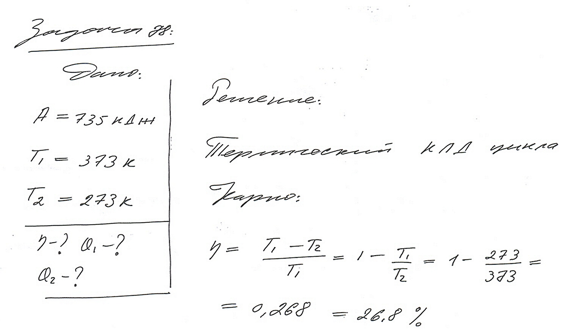 Задача 98:
Дано:
A = 735 кДж
T₁ = 373 к
T₂ = 273 к
η-? Q₁-?
Q₂-?
Решение:
Термический КПД цикла
Карно:
η = (T₁ - T₂)/T₁ = 1 - T₁/T₂ = 1 - 273/373 =
= 0,268 = 26,8 %